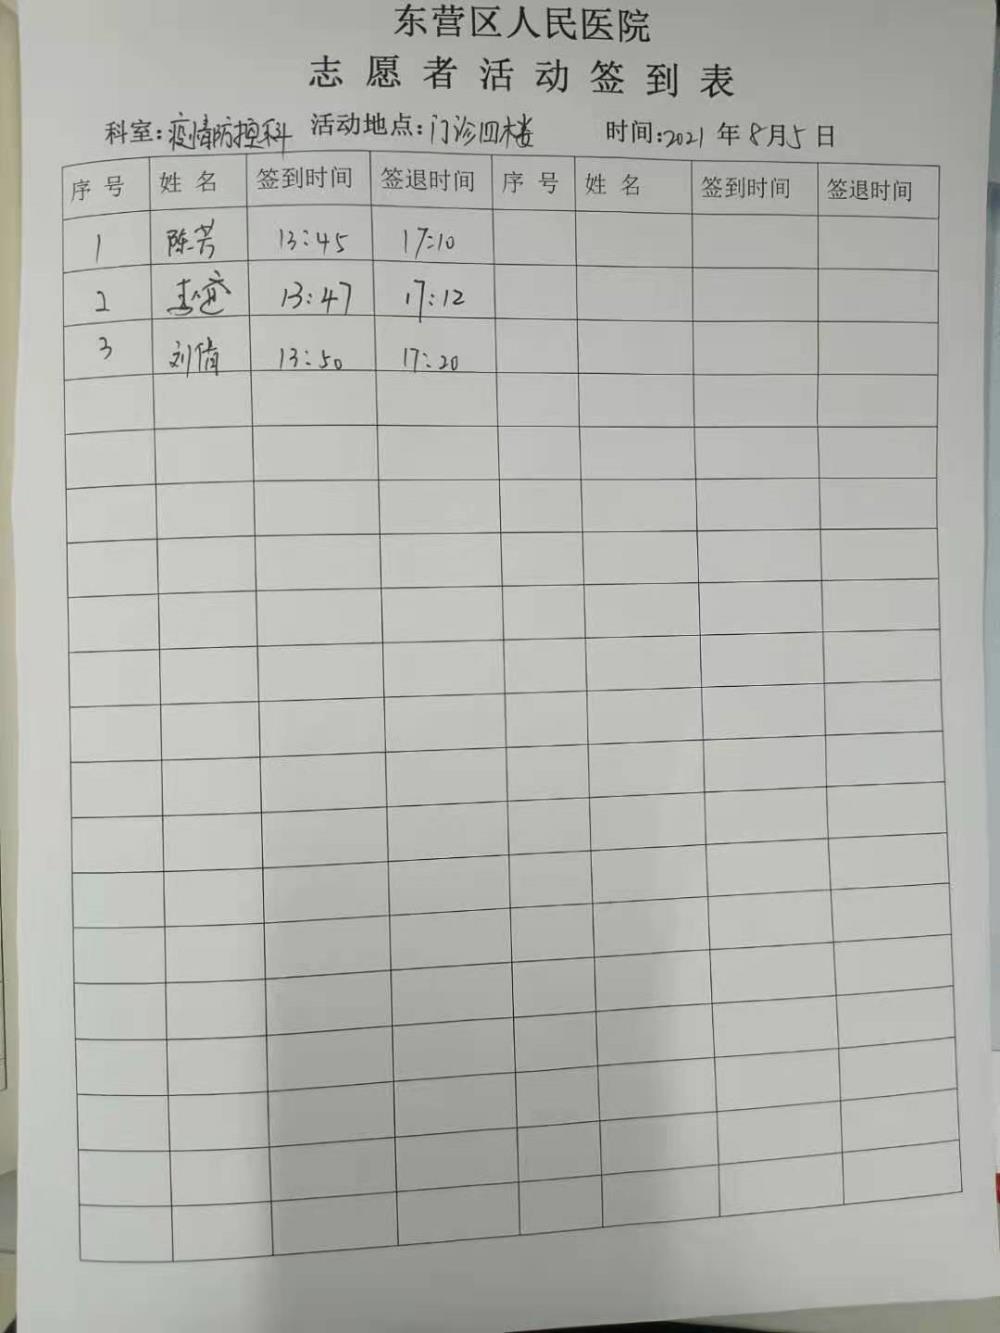 东营区人民医院
志愿者活动签到表
科室:疫情防控科 活动地点:门诊四楼 时间:2021年8月5日
序号 姓名 签到时间 签退时间 序号 姓名 签到时间 签退时间
1 陈芳 13:45 17:10
2 13:47 17:12
3 刘倩 13:50 17:20